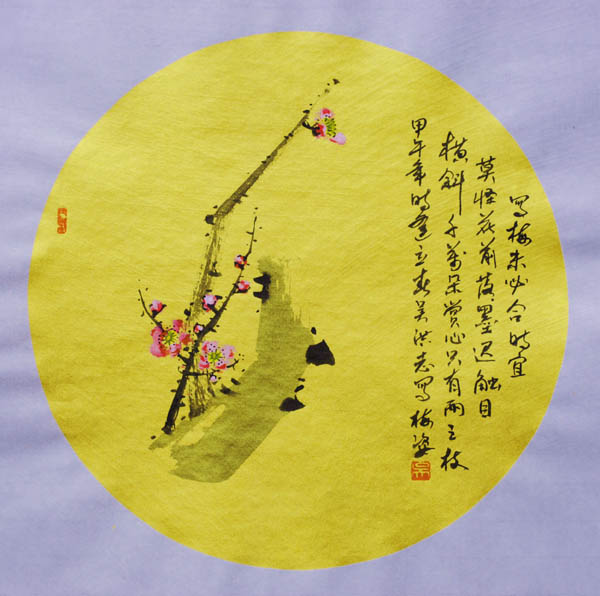 寫梅未必合時宜
莫怪花前落墨迟触目
横斜千萬朵赏心只有兩三枝
甲午年時逢立春吴洪志寫梅姿